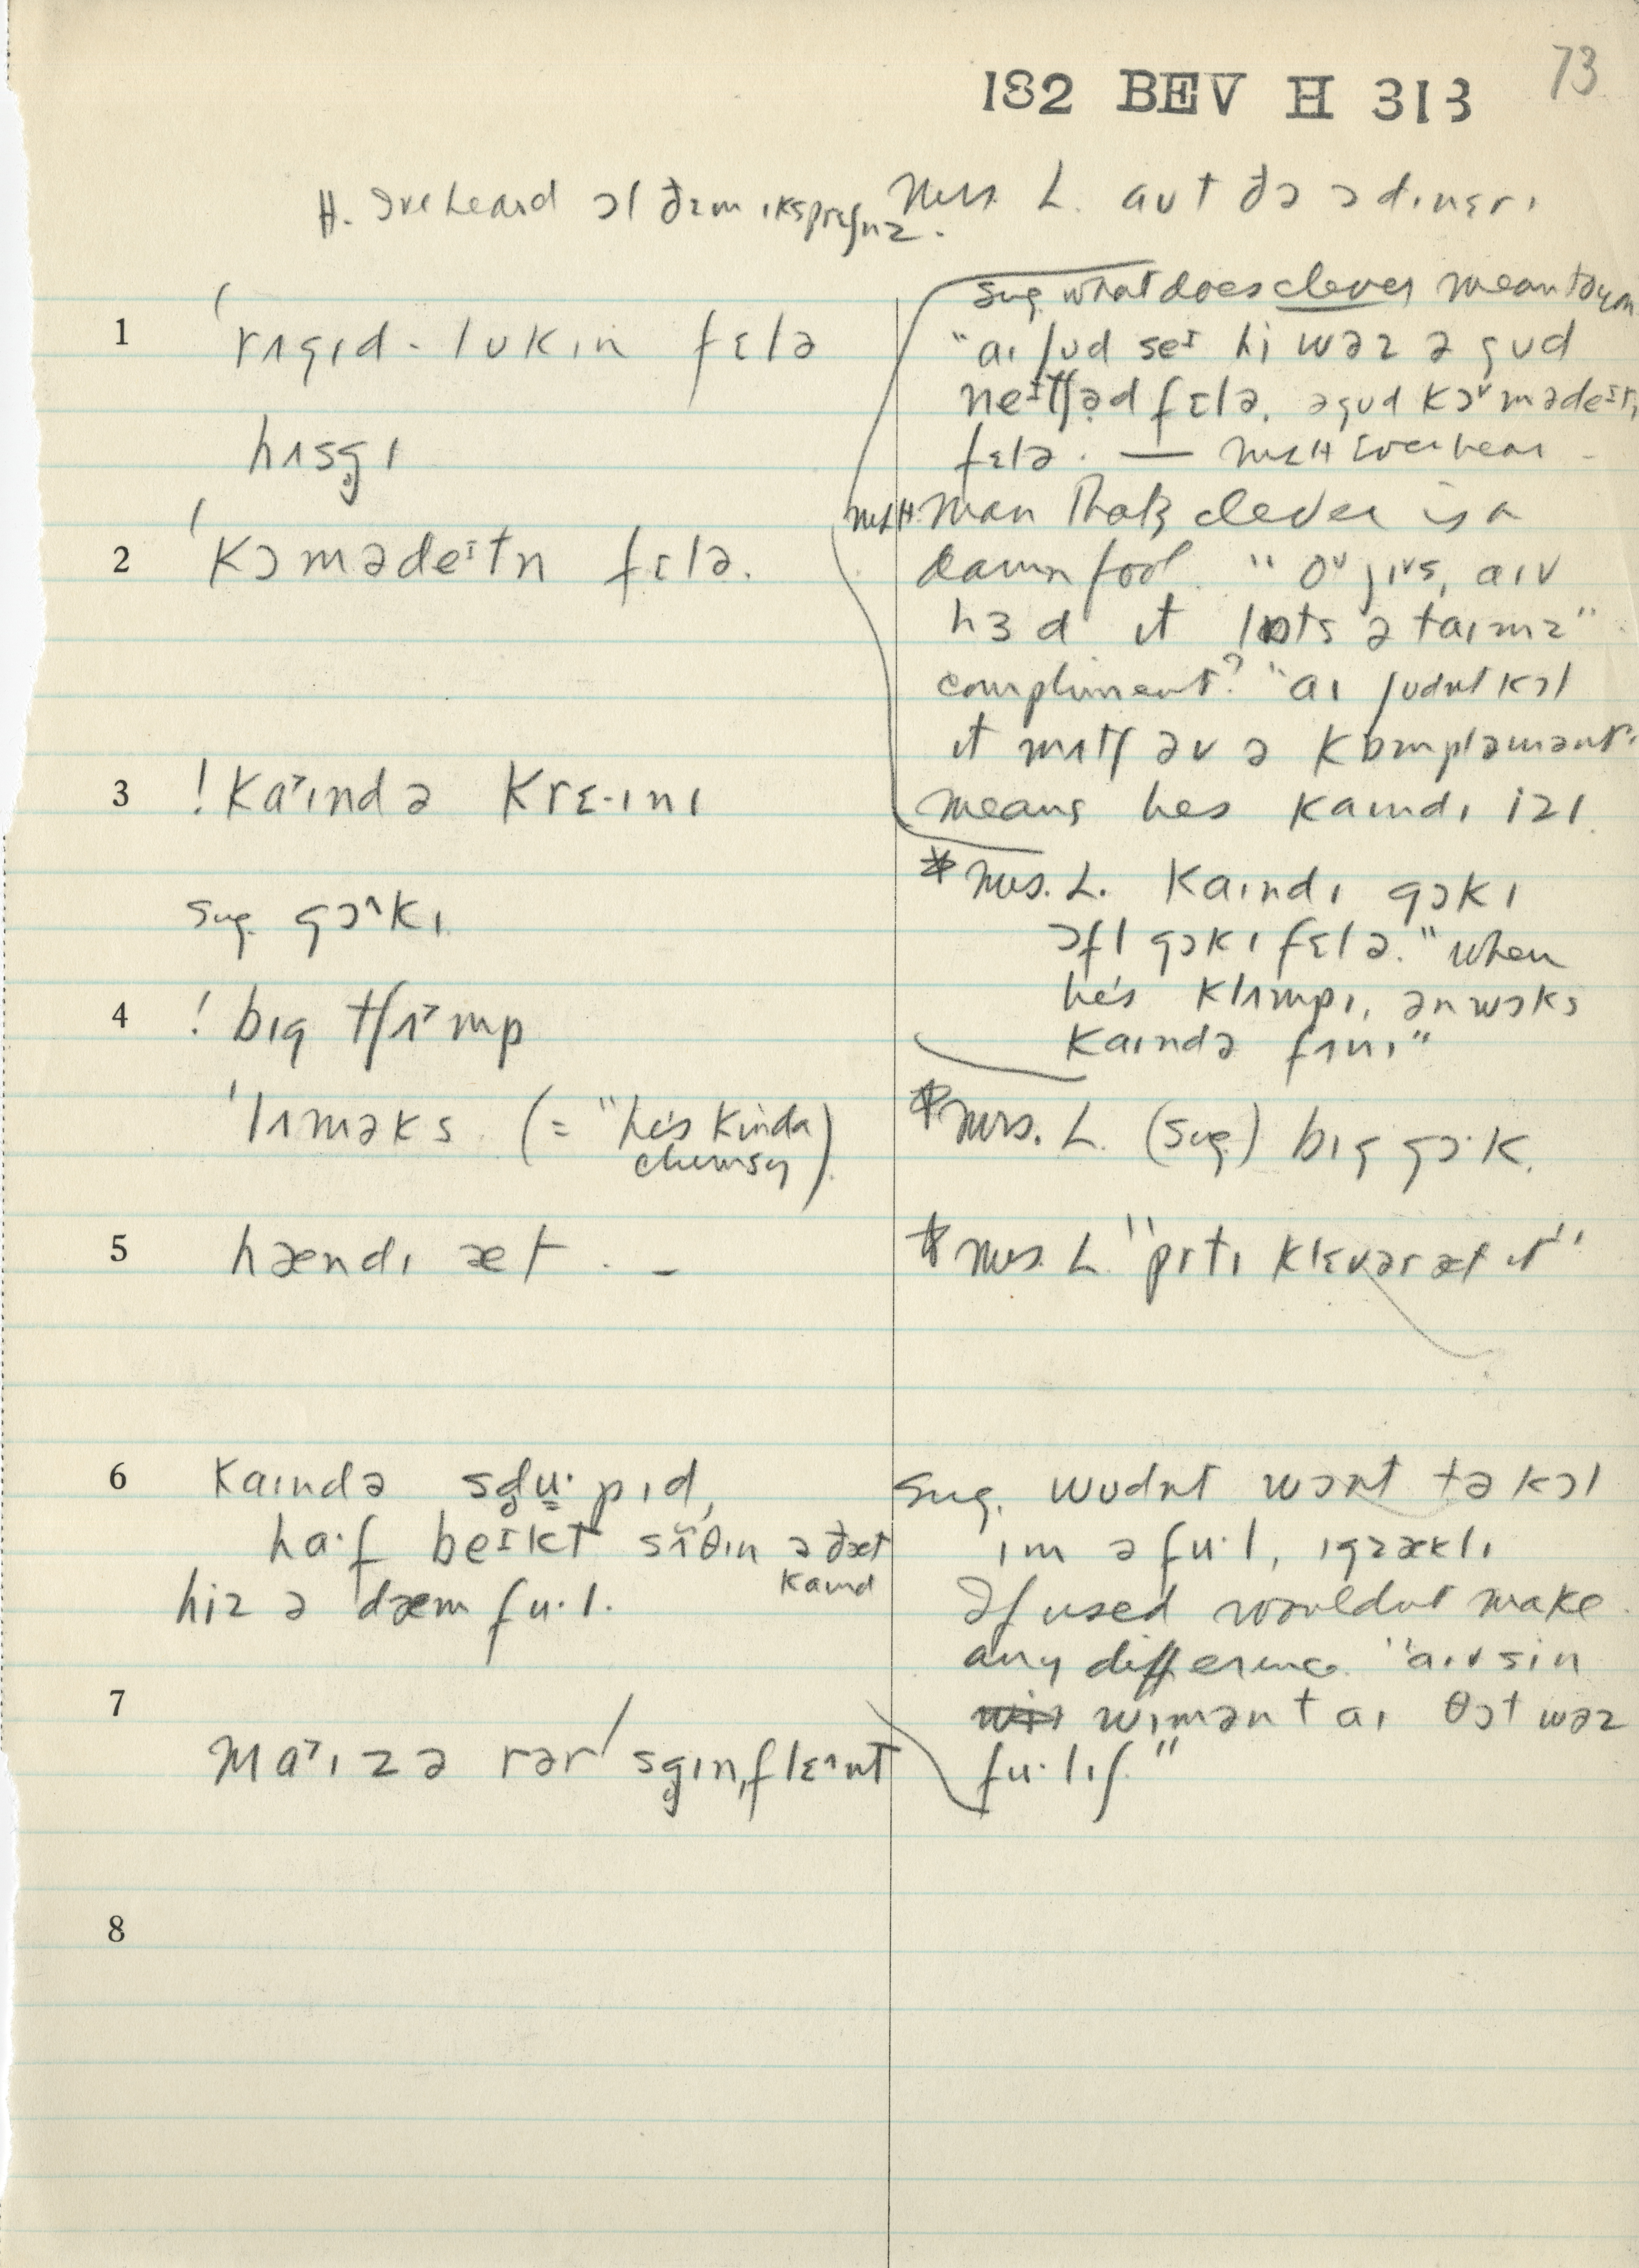 73
182 BEV H 313
Mrs. L. aʊt ðə ədɪnɛrɪ
H. I've heard ɔl ðəm ɪksprɛʃnz.
1 ˈrʌgɪd-lʊkɪn fɛlə
hʌsg̥ɪ
2 ˈkɔmədeɪtn fɛlə.
3 ! kaˠɪndə krɛ·ɪnɪ
sug. gɔ^kɪ.
4 ! bɪg tʃʌˠmp
ˈlʌməks (= "he's kinda
clumsy)
5 hændɪ æt . –
6 kaɪndə sd̥u·pɪd,
ha·f beɪkt sʌ̆θɪn ə ðæt
kaɪnd
hiz ə dæm fu·l.
7 maˠɪzə rər sg̥ɪnˌflɛɪnt
8
sug. what does clever mean to you
"aɪ ʃʊd seɪ hi wəz ə gʊd
neɪtʃəd fɛlə. ə gʊd kɔˠmədeɪtɪ
fɛlə. — MLH Ever hear
MLH. Man that's clever is a
damn fool. "oʊ jɪˠs, aɪv
hɜd ɪt lɒts ə taɪmz"
compliment? "aɪ ʃʊdnt kɔl
ɪt mʌtʃ əv ə kɒmpləmənt.
means hes kaɪndɪ izɪ.
* Mrs. L. kaɪndɪ gɔkɪ
ɔfl gɔkɪ fɛlə. "when
he's klʌmpɪ, ən wɔks
kaɪndə fʌnɪ"
* Mrs. L. (sug.) bɪg gɔ·k.
* Mrs. L "prɪtɪ klɛvər æt ɪt"
sug. wʊdnt wɔnt tə kɔl
ɪm ə fu·l, ɪgzæklɪ
If used wouldnt make
any difference. "aɪv sin
wɪmən t aɪ θɔt wəz
fu·lɪʃ."